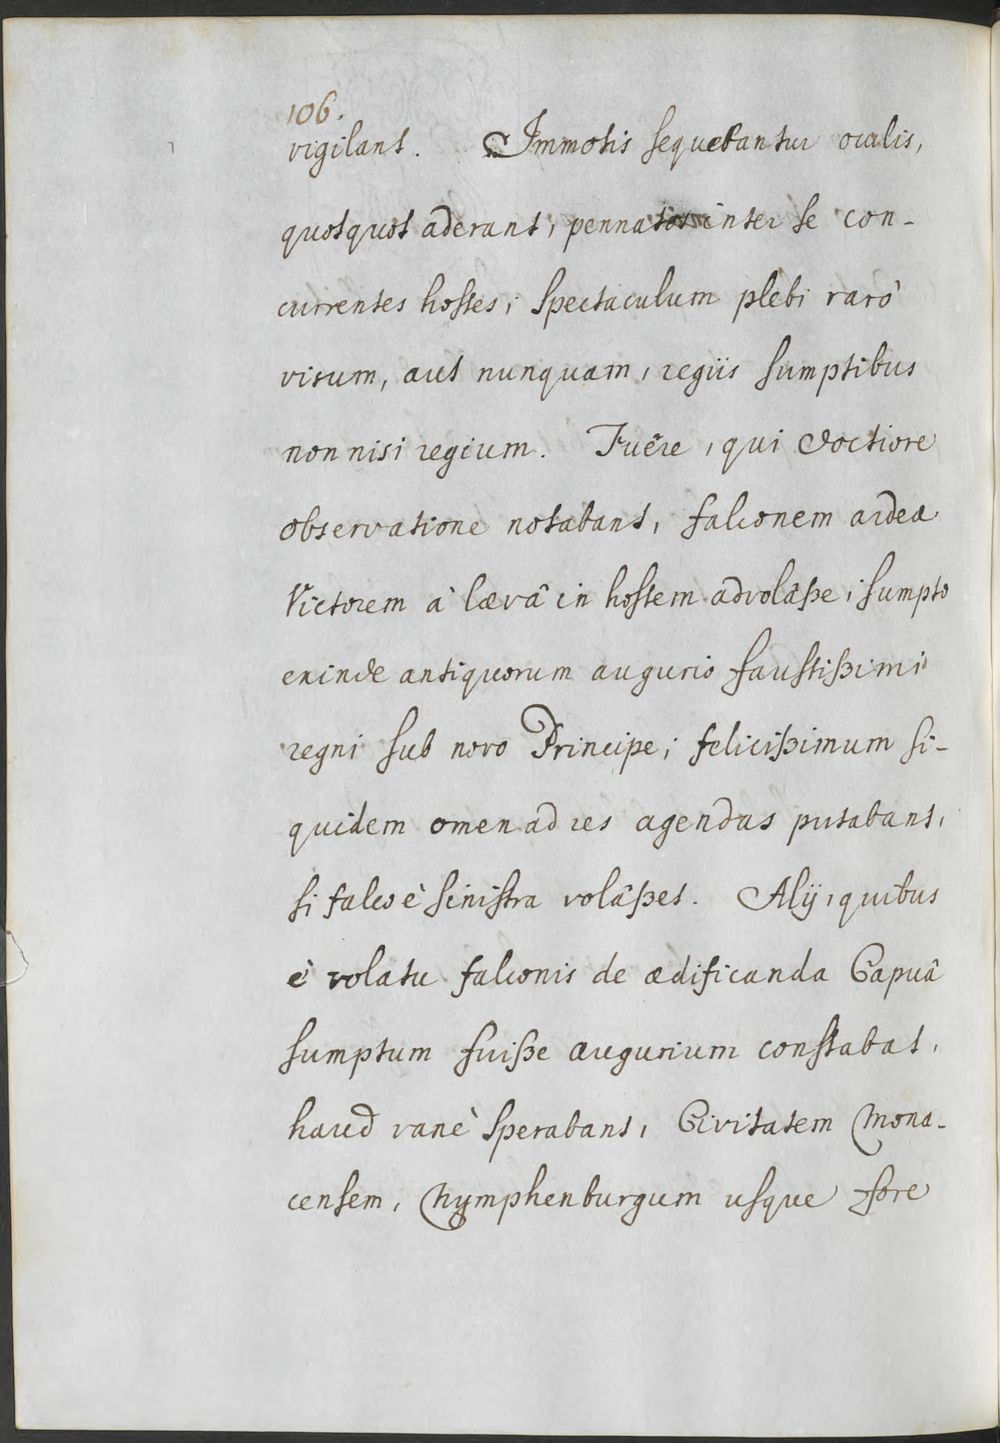 106.
vigilant. Immotis sequebantur oculis,
quotquot aderant, pennatos inter se con-
currentes hostes; spectaculum plebi rarò
visum, aut nunquam, regiis sumptibus
non nisi regium. Fuêre, qui doctiore
observatione notabant, falconem ardeæ
Victorem à lævâ in hostem advolâße; sumpto
exinde antiquorum augurio faustißimi
regni sub novo Principe; felicißimum si-
quidem omen ad res agendas putabant,
si falco è sinistra volâßet. Alij, quibus
è volatu falconis de ædificanda Capuâ
sumptum fuiße augurium constabat,
haud vanè sperabant, Civitatem Mona-
censem, Nymphenburgum usque fore